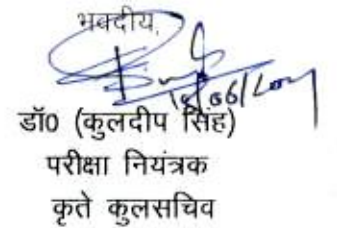 भवदीय,
डॉ0 (कुलदीप सिंह)
परीक्षा नियंत्रक
कृते कुलसचिव